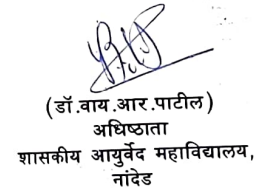 (डॉ.वाय.आर.पाटील)
अधिष्ठाता
शासकीय आयुर्वेद महाविद्यालय,
नांदेड